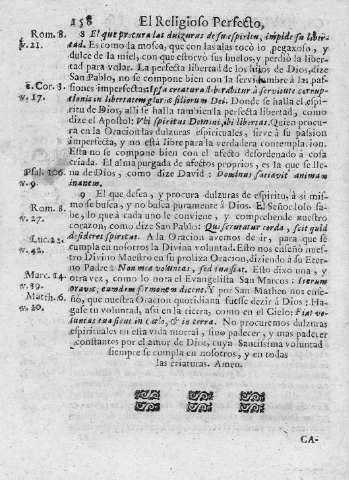 258 El Religioso Perfecto,
Rom. 8. 8 El que procura las dulzuras de su espiritu, impide su liber-
℣. 21. tad. Es como la mosca, que con las alas tocò lo pegaxoso, y
dulce de la miel, con que estorvò sus buelos, y perdiò la libertad
para volar. La perfecta libertad de los hijos de Dios, dize
San Pablo, no se compone bien con la servidumbre à las pas-
2. Cor. 3. siones imperfectas: Ipsa creatura liberabitur à servitute corrup-
℣. 17. tionis in libertatem gloriæ filiorum Dei. Donde se halla el espi-
ritu de Dios, alli se halla tambien la perfecta libertad, como
dize el Apostol: Vbi spiritus Domini, ibi libertas. Quien procu-
ra en la Oracion las dulzuras espirituales, sirve à su passion
imperfecta, y no està libre para la verdadera contemplacion.
Esta no se compone bien con el afecto desordenado à cosa
criada. El alma purgada de afectos proprios, es la que se lle-
Psal. 106. na de Dios, como dize David: Dominus satiavit animam
℣. 9. inanem.
9 El que desea, y procura dulzuras de espiritu, à si mis-
mo se busca, y no busca puramente à Dios. El Señor solo sa-
Rom. 8. be, lo que à cada uno le conviene, y comprehende nuestro
℣. 27. corazon, como dize San Pablo: Qui scrutatur corda, scit quid
desideret spiritus. A la Oracion avemos de ir, para que se
Luc. 22. cumpla en nosotros la Divina voluntad. Esto nos enseñò nues-
℣. 42. tro Divino Maestro en su prolixa Oracion, diziendo à su Eter-
no Padre: Non mea voluntas, sed tua fiat. Esto dixo una, y
Marc. 14. otra vez, como lo nota el Evangelista San Marcos: Iterum
℣. 39. oravit, eumdem sermonem dicens. Y por San Matheo nos ense-
Matth. 6. ñò, que nuestra Oracion quotidiana fuesse dezir à Dios: Ha-
℣. 10. gase tu voluntad, assi en la tierra, como en el Cielo: Fiat vo-
luntas tua sicut in Cælo, & in terra. No procuremos dulzuras
espirituales en esta vida mortal, sino padecer, y mas padecer
constantes por el amor de Dios, cuya Santissima voluntad
siempre se cumpla en nosotros, y en todas
las criaturas. Amen.
CA-